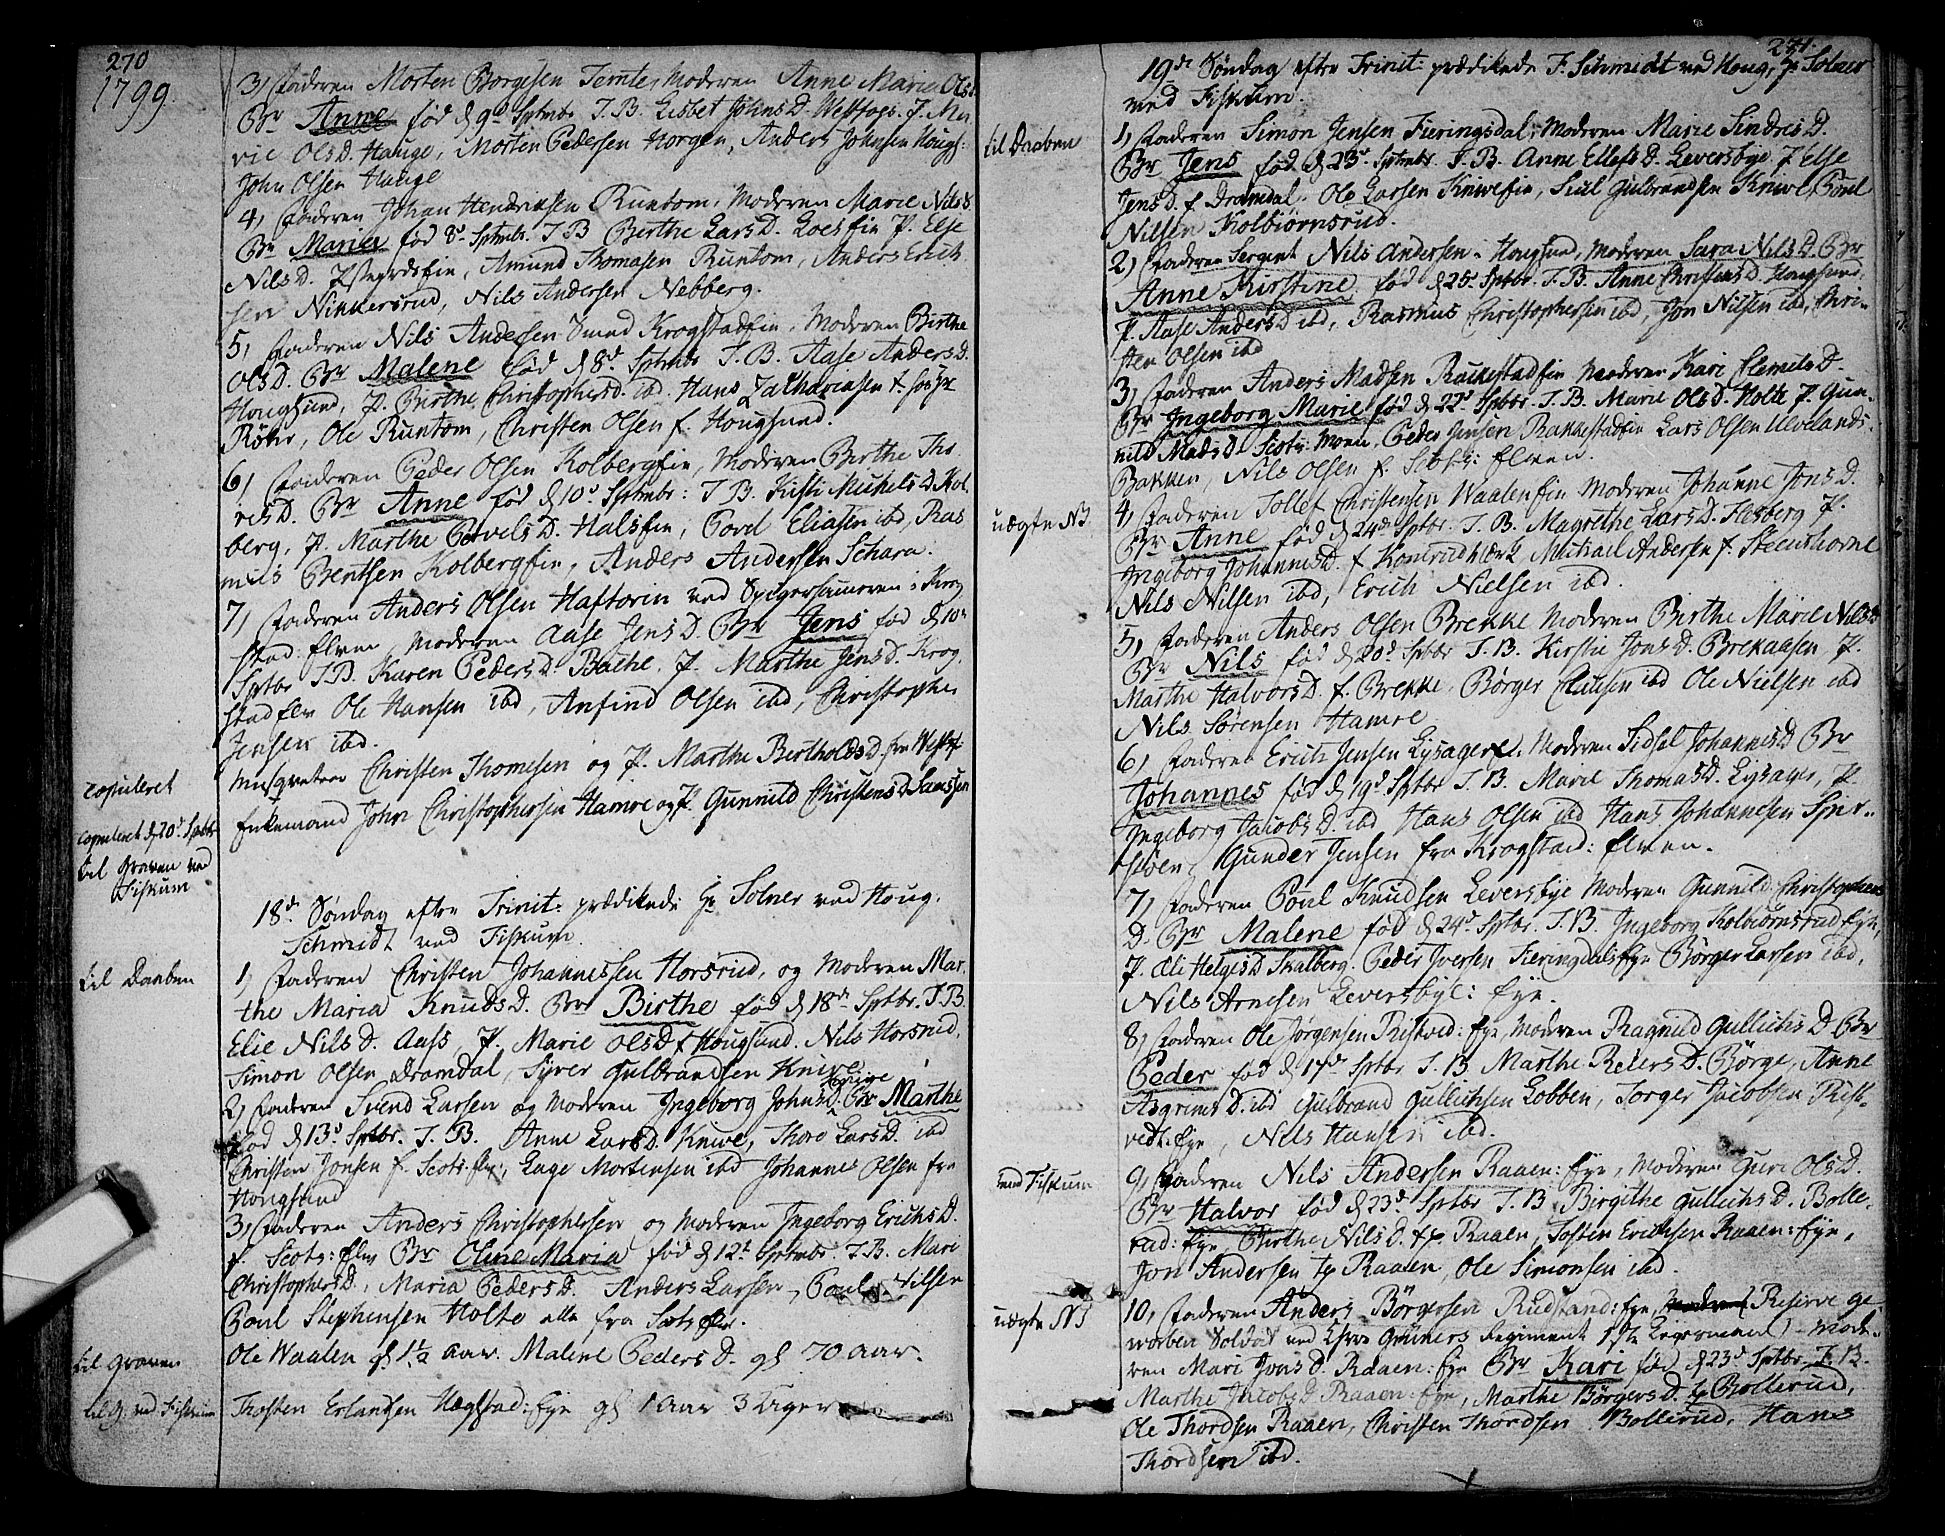 270
1799.
3, Faderen Morten Borgesen Temte, Moderen Anne Marie Olsd
Br Anne fød d 9de Sptmbr. T. B. Lisbet Johns D. Westfogs. P. Ma
rie OlsD. Hauge, Morten Pedersen Horgen, Anders Johnsen Hougs:
John Olsen Hauge
4, Faderen Johan Hendrichsen Runtom, Moderen Marie Nils D.
Br Maria fød 8de Sptmbr. T B Berthe Lars D. Loesfin P. Else
Nils D. Amund Thomasen Runtom, Anders Erich
sen Nikkersrud, Nils Andersen Nebberg.
5, Faderen Nils Andersen Smed Krogstadfin, Moderen Birthe
Ols D. Br Malene fød d 8de Sptmbr T. B. Aase Anders D.
Hougsund, P. Birthe Christophersd. ibd. Hans Zachariasen
Röhr, Ole Runtom, Christen Olsen f. Hougsund.
6, Faderen Peder Olsen Kolbergfin, Moderen Birthe Tho
res D. Br Anne fød d 10de Sptmbr: T. B. Kisti Michels D. Kol
berg, P. Marthe Povels D. Halsfin, Povel Eliasen ibd, Ras
mus Bentsen Kolbergfin, Anders Andersen Schara.
7, Faderen Anders Olsen Haftorin ved Spigerhameren i Krog
stad Elven, Moderen Aase Jens D. Br Jens fød d 10de
Sptbr T B. Karen Peders D. Bache. P. Marthe Jens D. Krog
stadelv Ole Hansen ibd, Anfind Olsen ibd, Christopher
Jensen ibd.
copuleret
Musqveteer Christen Thomesen og P. Marthe Bertholds D. fra Westf:
copuleret d 20de Sptbr
Enkemand John Christophersen Hamre og P. Gunnild Christens D
til Graven ved
Fiskum
18de Søndag eftr Trinit: prædikede Hr Solner ved Houg.
Schmidt ved Fiskum.
til Daaben
1, Faderen Christen Johannessen Horsrud, og Moderen Mar
the Maria Knuds D. Br Birthe fød d 18de Sptbr. T. B.
Elie Nils D. Aass P. Marie Ols D f Hougsund. Nils Horsrud,
Simon Olsen Dramdal, Syver Gulbrandsen Knive
2, Faderen Svend Larsen og Moderen Ingeborg Johns D. Knive Br Marthe
fød d 13de Sptbr. T. B. Anne Lars D. Knive, Thore Lars D. ibd
Christen Jonsen f. Scots: elv:, Lage Mortensen ibd Johannes Olsen fra
Hougsund
3, Faderen Anders Christophersen og Moderen Ingeborg Erichs D.
f. Scots: Elv Br Oline Maria fød d 12te Sptmbr. T. B. Mari
Christophers D., Maria Peders D. Anders Larsen, Poul Nilsen
Poul Stephensen Holte alle fra Scots elv.
til Graven
Ole Waalen gl 1½ Aar. Malene Peders D. gl 70 aar.
til G. ved Fiskum
Thosten Erlandsen Hægstad: Eye gl 1 Aar 3 Uger
271.
19de Søndag eftr Trinit: prædikede F. Schmidt ved Houg, Hr Solner
ved Fiskum.
til Daaben
1, Faderen Simon Jensen Fieringsdal, Moderen Marie Sindres D.
Br Jens fød d 23de Sptmbr. T. B. Anne Ellefs D. Leversbye, P. Else
Jens D. f. Dramdal. Ole Larsen Knivefin, Siul Gulbrandsen Knive Poul
Nilsen Kolbiörnsrud.
2, Faderen Sergent Nils Andersen i Hougsund, Moderen Sara Nils D. Br
Anne Kirstine fød d 25de Sptbr. T. B. Anne Christens D. Hougsund,
P. Aase Anders D ibd, Rasmus Christophersen ibd, Jon Nilsen ibd, Chri-
sten Olsen ibd
3, Faderen Anders Madsen Rackestadfin Moderen Kari Clemets D.
Br Ingeborg Marie fød d 22de Sptbr. T. B. Marie Ols D. Holte P. Gun-
nild Mads D. Scots: Moen. Peder Jensen Rakkestadfin Lars Olsen Ulvelands-
Bakken, Nils Olsen f. Scots: Elven.
uægte NB
4, Faderen Tollef Christensen Waalenfin Moderen Johanne Jons D.
Br Anne fød d 24de Sptbr. T. B. Magrethe Lars D. Flesberg P.
Ingeborg Johannes D. f. Komrudværk Michail Andersen f. Steenshorne
Nils Nilsen ibd, Erich Nielsen ibd.
5, Faderen Anders Olsen Brekke Moderen Birthe Marie Nils D
Br Nils fød d 20de Sptbr T. B. Kirstie Jons D. Brekaasen, P.
Marthe Halvors D. f. Brekke. Børger Clausen ibd Ole Nielsen ibd
Nils Sörensen Hamre
6, Faderen Erich Jensen Lysager, Moderen Sidsel Johannes D Br
Johannes fød d 19de Sptbr T. B. Marie Thomas D. Lysager, P.
Ingeborg Jacobs D. ibd Hans Olsen ibd Hans Johannesen
Gunder Jensen fra Krogstad: Elven.
7, Faderen Poul Knudsen Leversbye Moderen Gunnild Christophers
D. Br Malene fød d 24de Sptbr. T. B. Ingeborg Kolbiörnsrud Eye,
P. Eli Helges D Skalberg. Peder Iversen Fieringdals Eye Börger Larsen ibd,
Nils Arnesen Leversbye: Eye.
8, Faderen Ole Jörgensen Ristved: Eye, Moderen Ragnild Gullichs D Br
Peder fød d 17de Sptbr T. B Marthe Peders D. Börge, Anne
Asgrims D. ibd Gulbrand Gullichsen Lobben, Torger Jacobsen Rist-
vedt: Eye, Nils Hansen ibd.
ved Fiskum
9, Faderen Nils Andersen Raaen: Eye, Moderen Guri Ols D.
Br Halvor fød d 23de Sptbr T. B Birgithe Gullichs D. Bolle-
rud: Eye Birthe Nils D. Raaen, Tosten Erichsen Raaen: Eye,
Jon Andersen Raaen, Ole Simonsen ibd.
uægte NB
10, Faderen Anders Börgersen Rudstand: Eye, Reserve ge-
worben Soldat ved Grüners Regiment (1ste Leyermaal) Mode-
ren Mari Jons D. Raaen: Eye Br Kari fød d 23de Sptbr T. B.
Marthe Jacobs D Raaen: Eye, Marthe Börgers D. Bollerud,
Ole Thordsen Raaen, Christen Thordsen Bollerud, Hans
Thordsen ibd.